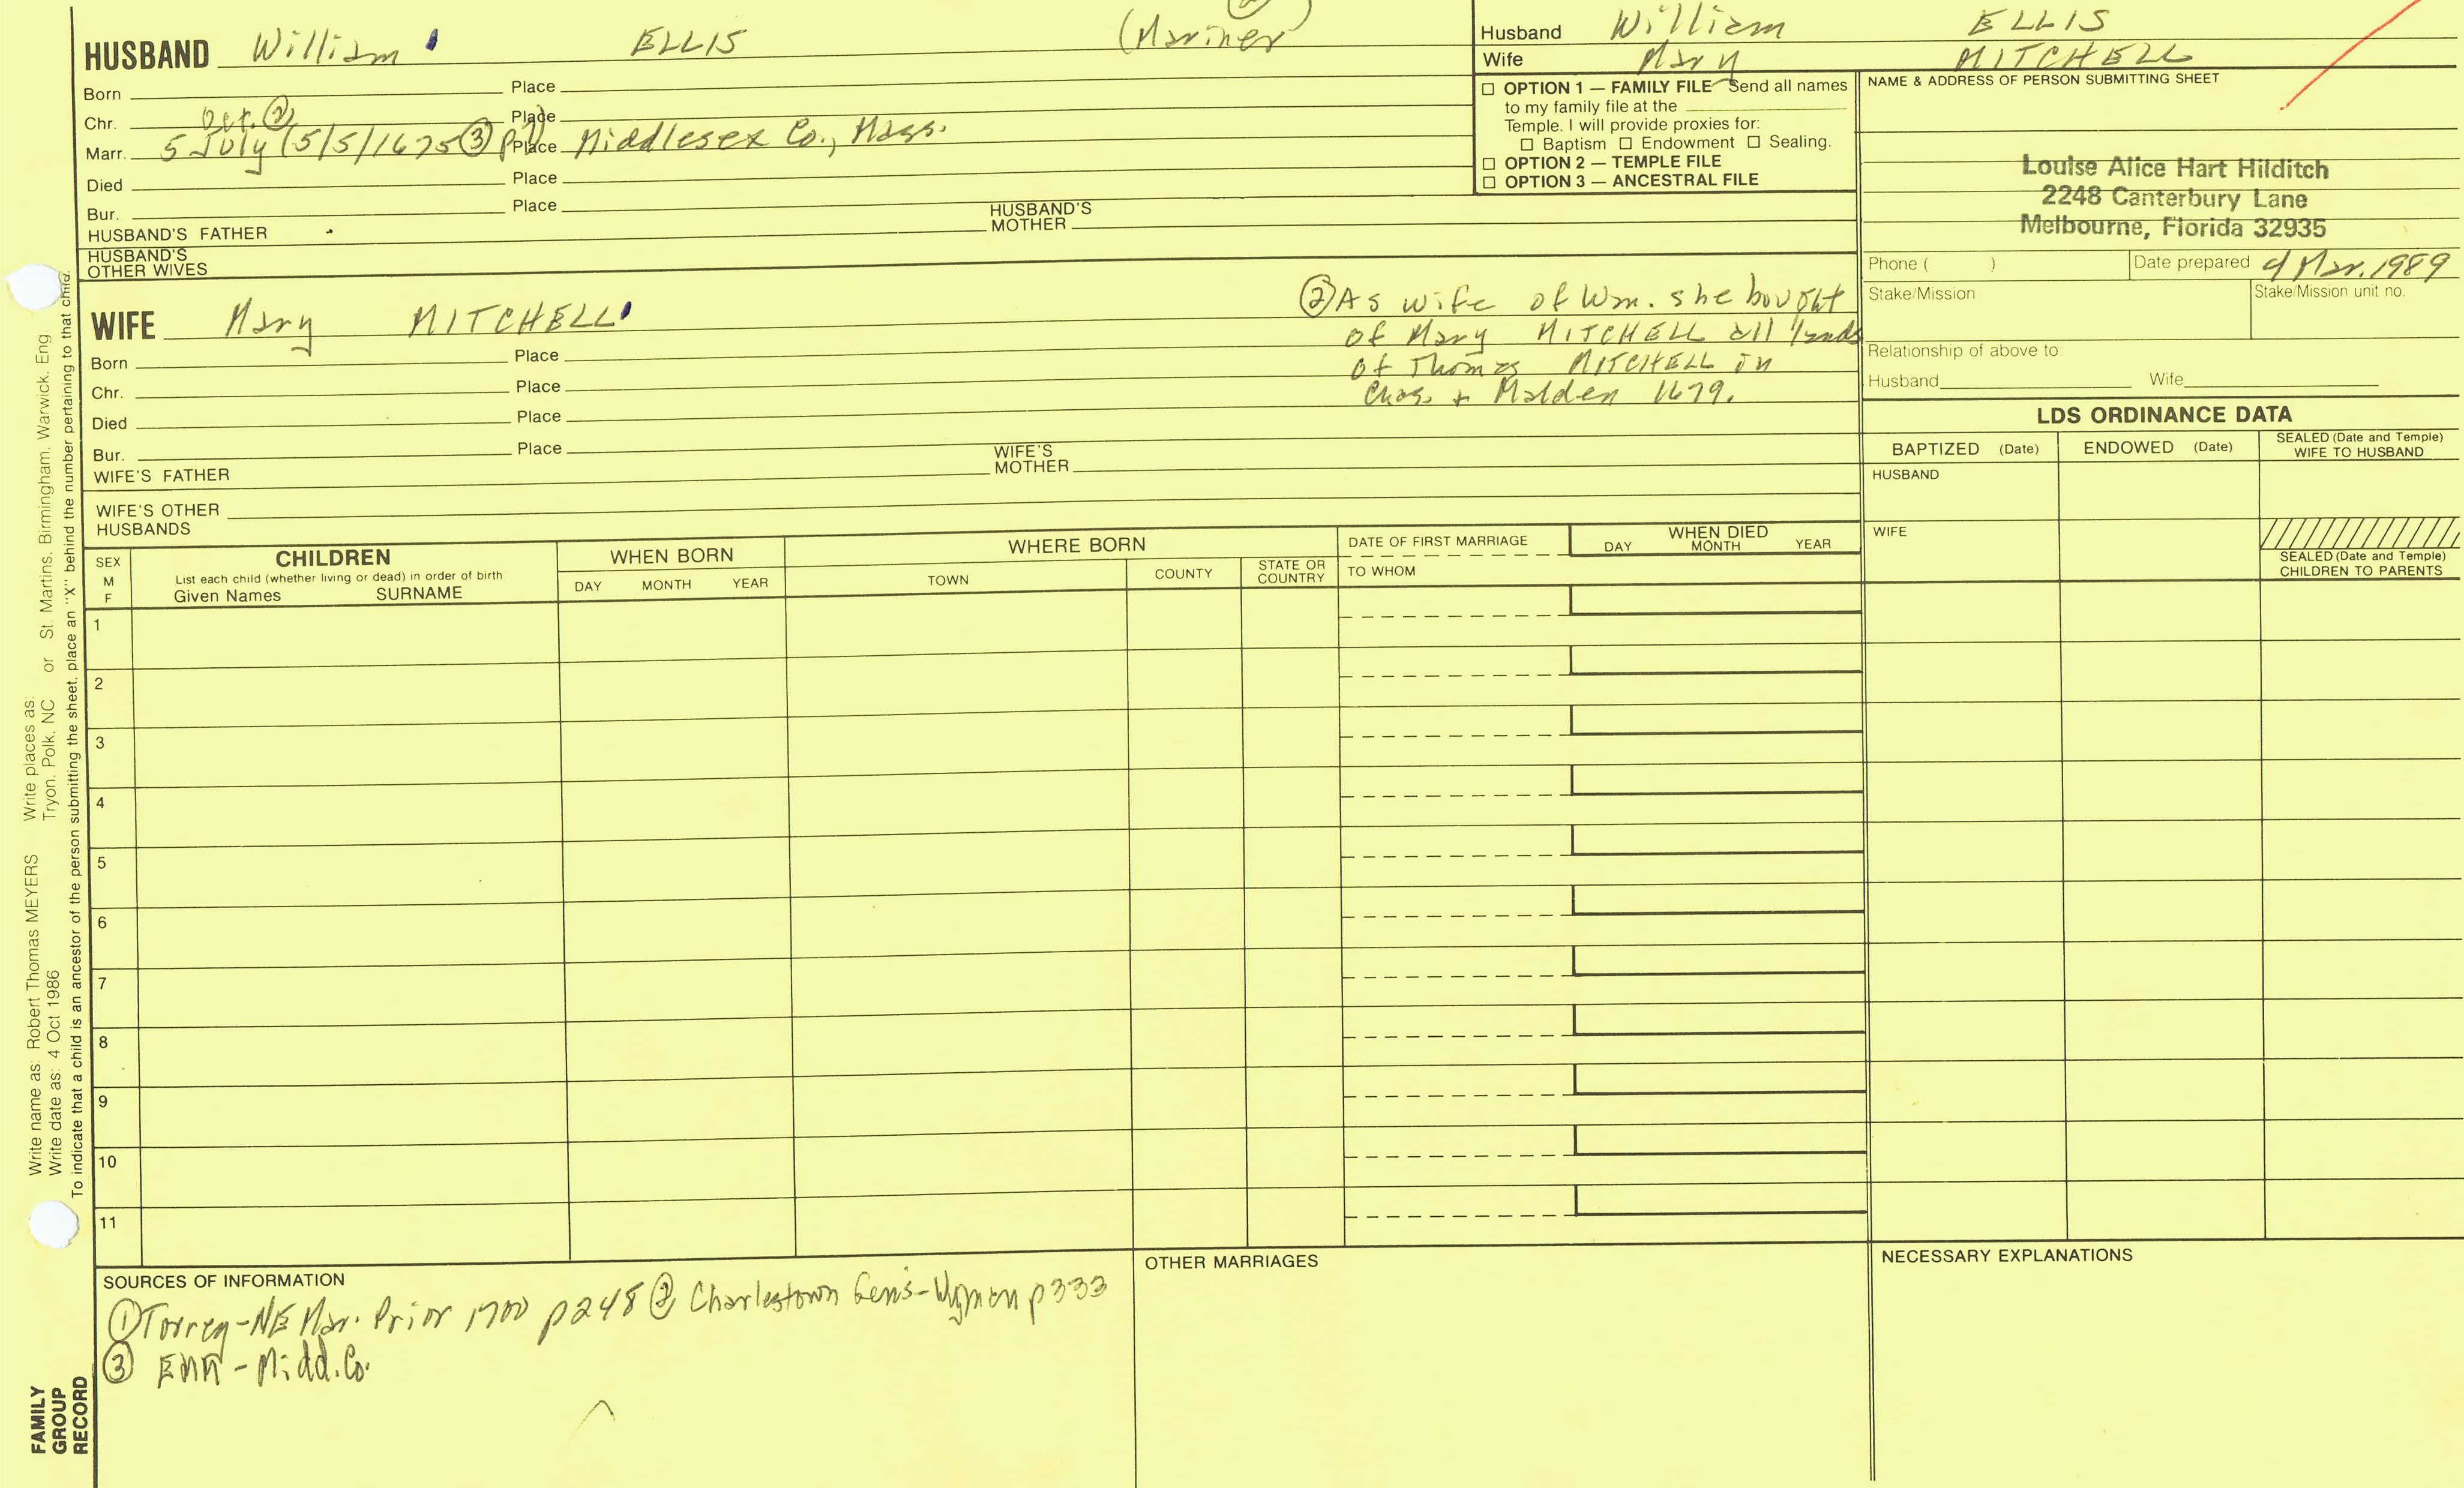 HUSBAND William ELLIS (Mariner)
Born Place
Chr. Place
Oct. ②
Marr. 5 July (5/5/1675 ③ Place Middlesex Co., Mass.
Died Place
Bur. Place
HUSBAND'S FATHER HUSBAND'S MOTHER
HUSBAND'S OTHER WIVES
Husband William ELLIS
Wife Mary MITCHELL
☐ OPTION 1 — FAMILY FILE Send all names
to my family file at the
Temple. I will provide proxies for:
☐ Baptism ☐ Endowment ☐ Sealing.
☐ OPTION 2 — TEMPLE FILE
☐ OPTION 3 — ANCESTRAL FILE
NAME & ADDRESS OF PERSON SUBMITTING SHEET
Louise Alice Hart Hilditch
2248 Canterbury Lane
Melbourne, Florida 32935
Phone ( ) Date prepared 4 Mar. 1989
Stake/Mission Stake/Mission unit no.
Relationship of above to:
Husband Wife
WIFE Mary MITCHELL
Born Place
Chr. Place
Died Place
Bur. Place
WIFE'S FATHER WIFE'S MOTHER
WIFE'S OTHER HUSBANDS
② As wife of Wm. she bought
of Mary MITCHELL all lands
of Thomas MITCHELL in
Chas. + Malden 1679.
LDS ORDINANCE DATA
BAPTIZED (Date) ENDOWED (Date) SEALED (Date and Temple) WIFE TO HUSBAND
HUSBAND
WIFE
SEALED (Date and Temple)
CHILDREN TO PARENTS
SEX
M
F
CHILDREN
List each child (whether living or dead) in order of birth
Given Names SURNAME
WHEN BORN
DAY MONTH YEAR
WHERE BORN
TOWN COUNTY STATE OR COUNTRY
DATE OF FIRST MARRIAGE
TO WHOM
WHEN DIED
DAY MONTH YEAR
1
2
3
4
5
6
7
8
9
10
11
SOURCES OF INFORMATION
① Torrey-NE Mar. Prior 1700 p248 ② Charlestown Gen's-Wyman p333
③ EMR - Midd. Co.
OTHER MARRIAGES
NECESSARY EXPLANATIONS
Write name as: Robert Thomas MEYERS Write places as:
Write date as: 4 Oct 1986 Tryon, Polk, NC or St. Martins, Birmingham, Warwick, Eng
To indicate that a child is an ancestor of the person submitting the sheet, place an "X" behind the number pertaining to that child.
FAMILY
GROUP
RECORD